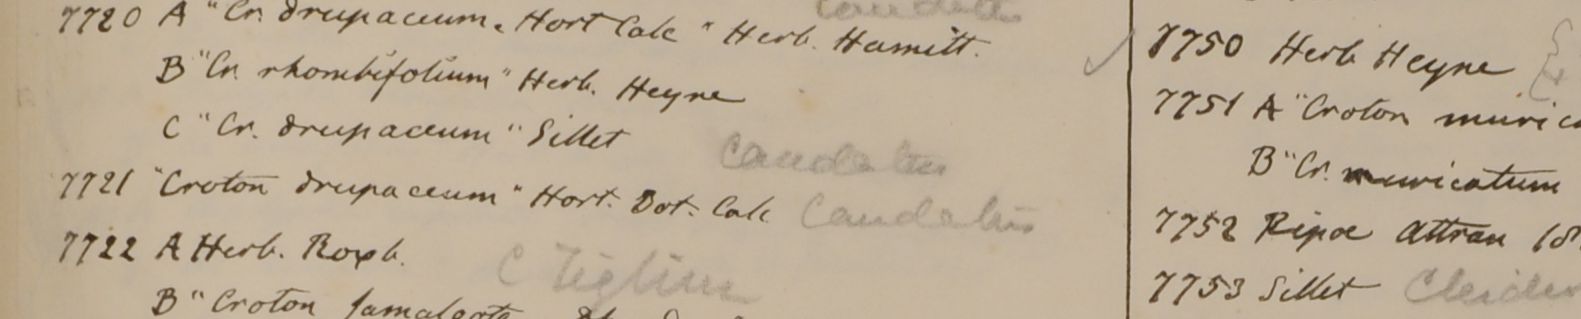 7720 A "Cr. drupaceum. Hort Calc" Herb. Hamilt.
B "Cr. rhombifolium" Herb. Heyne
C "Cr. drupaceum" Sillet caudatus
7721 "Croton drupaceum" Hort. Bot. Calc Caudatus
7722 A Herb. Roxb. C Tiglium
B "Croton Jamalgota
7750 Herb Heyne
7751 A "Croton muric
B "Cr. muricatum
7752 Ripae Attran 18
7753 Sillet